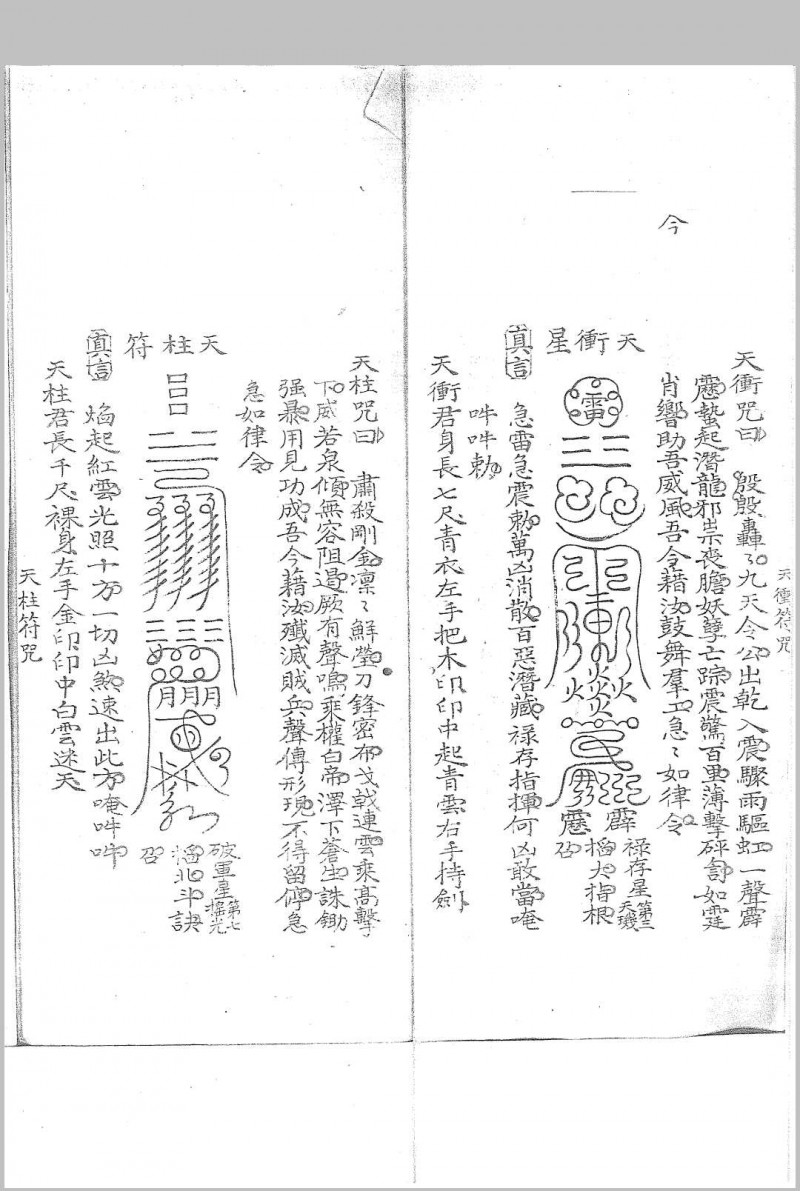 天衝符咒
天衝咒曰 殷殷轟々九天令公出乾入震驟雨驅虹一聲霹
靂蟄起潛龍邪祟喪膽妖孽亡踪震驚百里薄擊砰訇如霆
肖響助吾威風吾令藉汝鼓舞羣工急々如律令
今
天衝星
雷
霹
靂
祿存星第三天璣
掐大指根
召
真言 急雷急震勅萬凶消散百惡潛藏祿存指揮何凶敢當唵
吽吽勅
天衝君身長七尺青衣左手把木印印中起青雲右手持劍
天柱咒曰 肅殺剛金凛々鮮瑩刀鋒密布戈戟連雲乘高擊
下威若泉傾無容阻遏厥有聲鳴乘權白帝澤下蒼生誅鋤
强暴用見功成吾今藉汝殲滅賊兵聲傳形現不得留停急
急如律令
天柱符
破軍星第七搖光
掐北斗訣
召
真言 焰起紅雲光照十方一切凶煞速出此方唵吽吽
天柱君長千尺裸身左手金印印中白雲迷天
天柱符咒